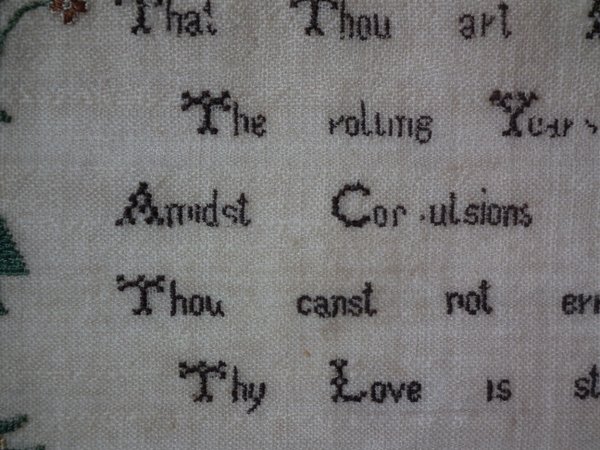 That Thou art
The rolling Years
Amidst Convulsions
Thou canst not
Thy Love is